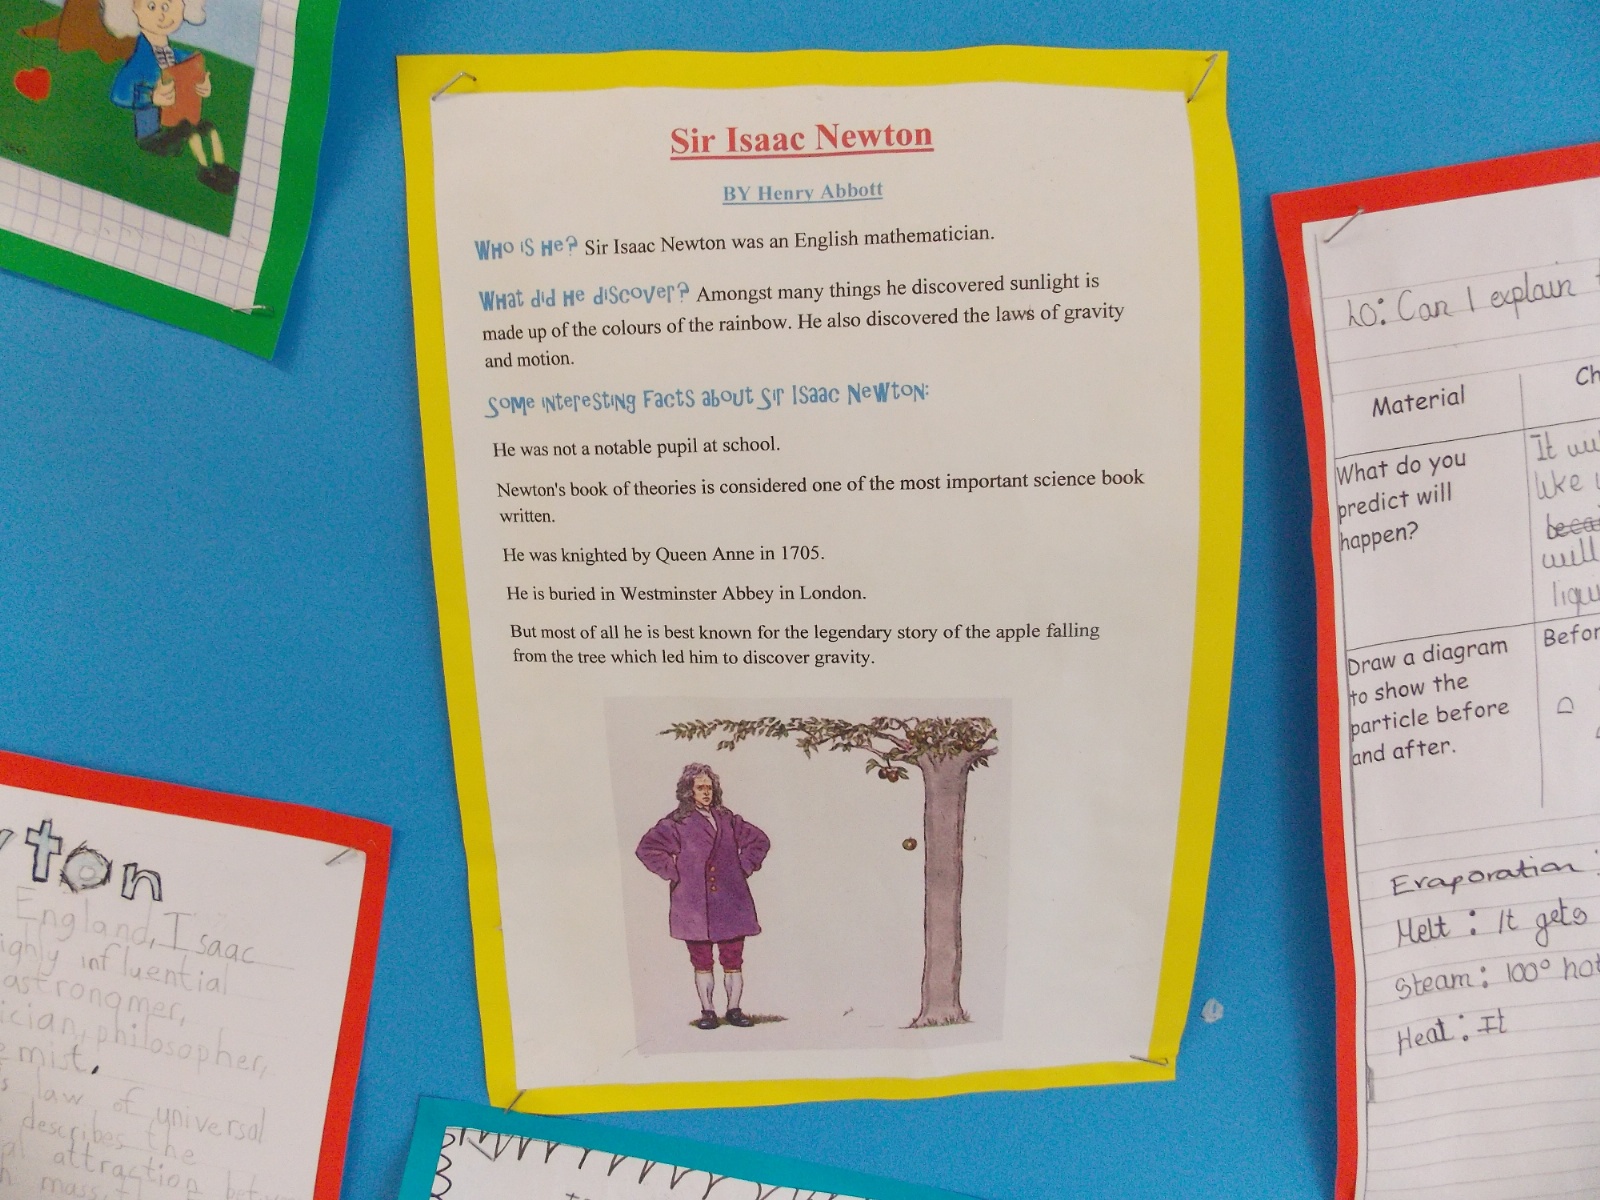 Sir Isaac Newton
BY Henry Abbott
Who is He? Sir Isaac Newton was an English mathematician.
What did He discover? Amongst many things he discovered sunlight is
made up of the colours of the rainbow. He also discovered the laws of gravity
and motion.
Some interesting Facts about Sir Isaac Newton:
He was not a notable pupil at school.
Newton's book of theories is considered one of the most important science book
written.
He was knighted by Queen Anne in 1705.
He is buried in Westminster Abbey in London.
But most of all he is best known for the legendary story of the apple falling
from the tree which led him to discover gravity.
ton
England, Isaac
influential
astronomer,
philosopher,
law of universal
describes the
attraction
mass
LO: Can I explain
Material
What do you
predict will
happen?
It
like
liqu
Draw a diagram
to show the
particle before
and after.
Befor
Evaporation :
Melt : It gets
Steam : 100° hot
Heat : It